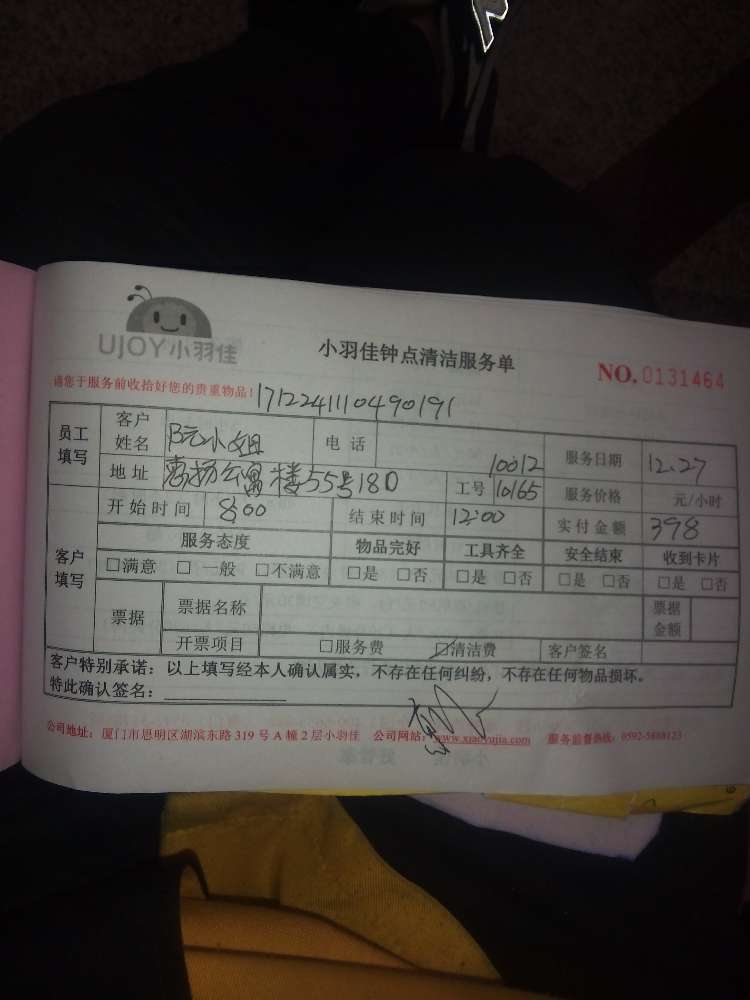 UJOY小羽佳
小羽佳钟点清洁服务单
NO.0131464
请您于服务前收拾好您的贵重物品!
1712241110490191
员工填写 客户姓名 阮小姐 电话 服务日期 12.27
地址 惠扬公寓楼55号18D 工号 10012 10165 服务价格 元/小时
客户填写 开始时间 8:00 结束时间 12:00 实付金额 398
服务态度 物品完好 工具齐全 安全结束 收到卡片
□满意 □一般 □不满意 □是 □否 □是 □否 □是 □否 □是 □否
票据 票据名称 票据金额
开票项目 □服务费 □清洁费 客户签名
客户特别承诺:以上填写经本人确认属实,不存在任何纠纷,不存在任何物品损坏。
特此确认签名:
公司地址:厦门市思明区湖滨东路319号A幢2层小羽佳 公司网站:www.xiaoyujia.com 服务监督热线:0592-5888123